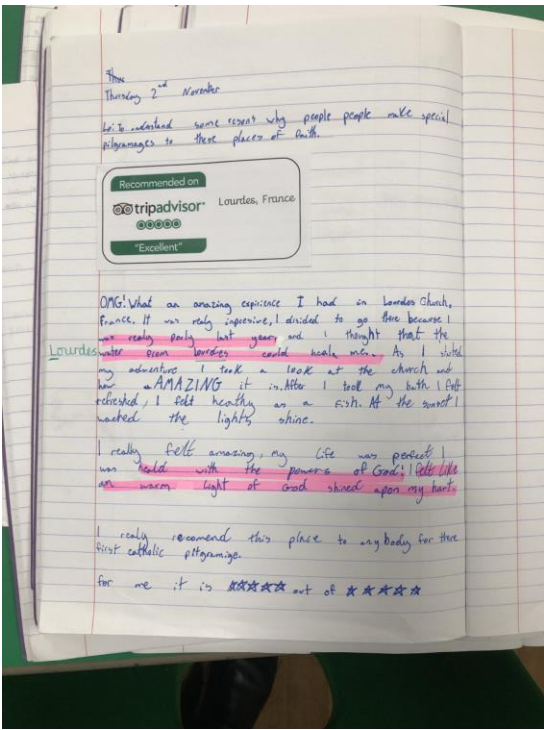 Thurs
Thursday 2nd November
Lo: To understand some reson's why people people make special
pilgramages to there places of faith.
Recommended on
tripadvisor®
Lourdes, France
"Excellent"
OMG! What an amazing expirience I had in Lourdes Church,
France. It was realy inpresive, I disided to go there because I
was realy porly last year, and I thought that the
Lourdes water from lourdes could heale me. As I started
my adventure I took a look at the church and
how AMAZING it is. After I took my bath I felt
refreshed, I felt healthy as a fish. At the sunset I
wached the lights shine.
I really felt amazing, my life was perfect I
was heald with the powers of God! I felt like
an warm light of God shined apon my hart.
I realy recomend this place to anybody for there
first catholic pilgramige.
for me it is ★★★★★ out of ★★★★★